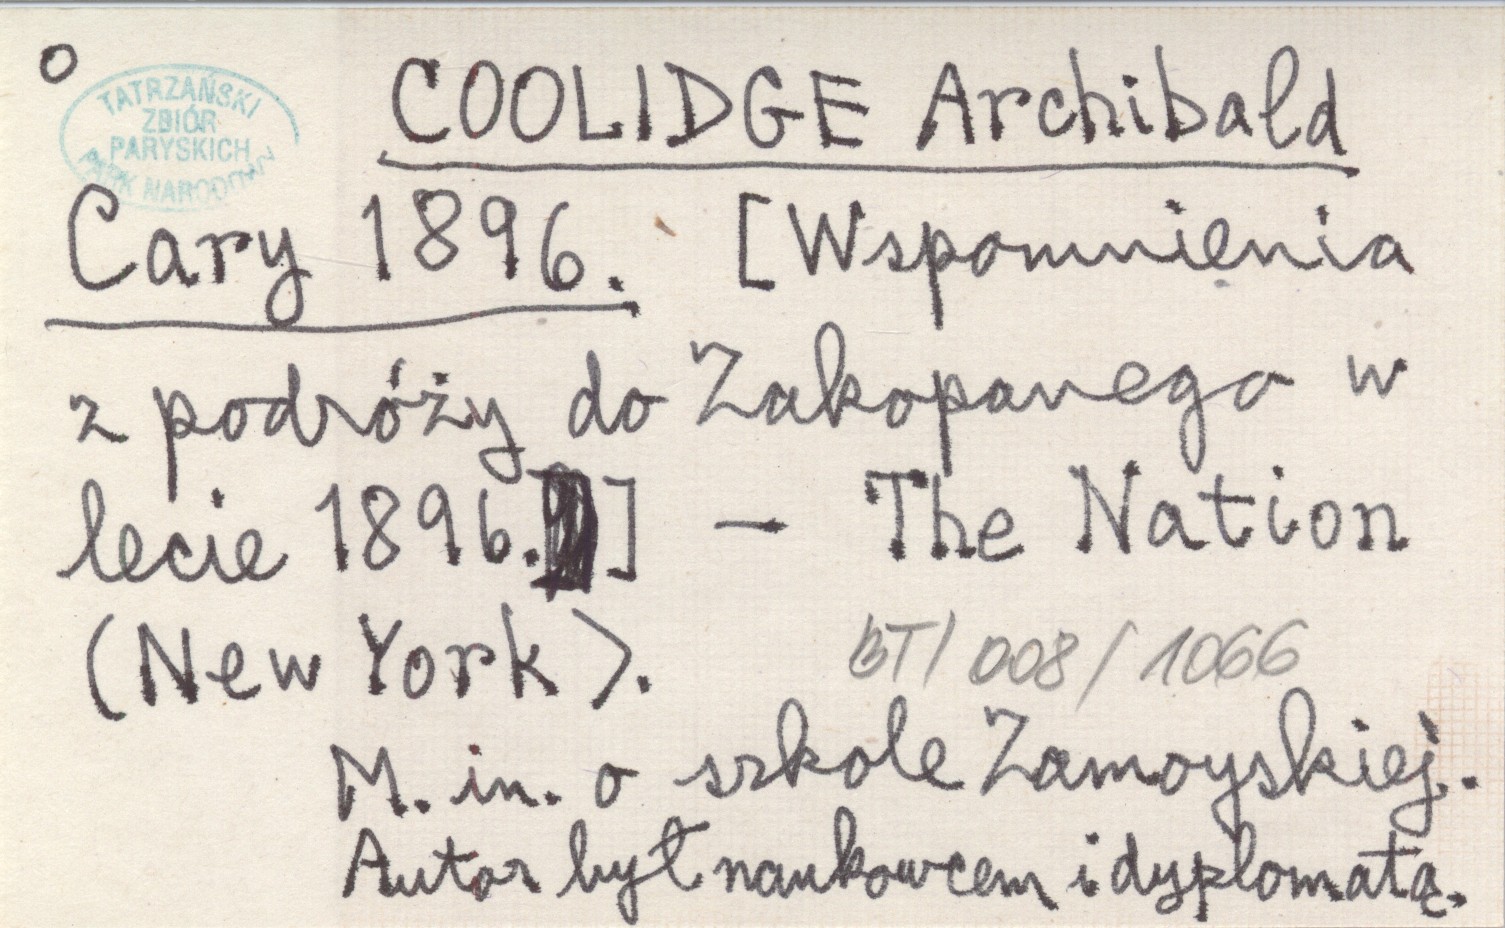 o
TATRZAŃSKI
ZBIÓR
PARYSKICH
PARK NARODOWY
COOLIDGE Archibald
Cary 1896. [Wspomnienia
z podróży do Zakopanego w
lecie 1896.] — The Nation
(New York).
BT/008/1066
M. in. o szkole Zamoyskiej.
Autor był naukowcem i dyplomatą.